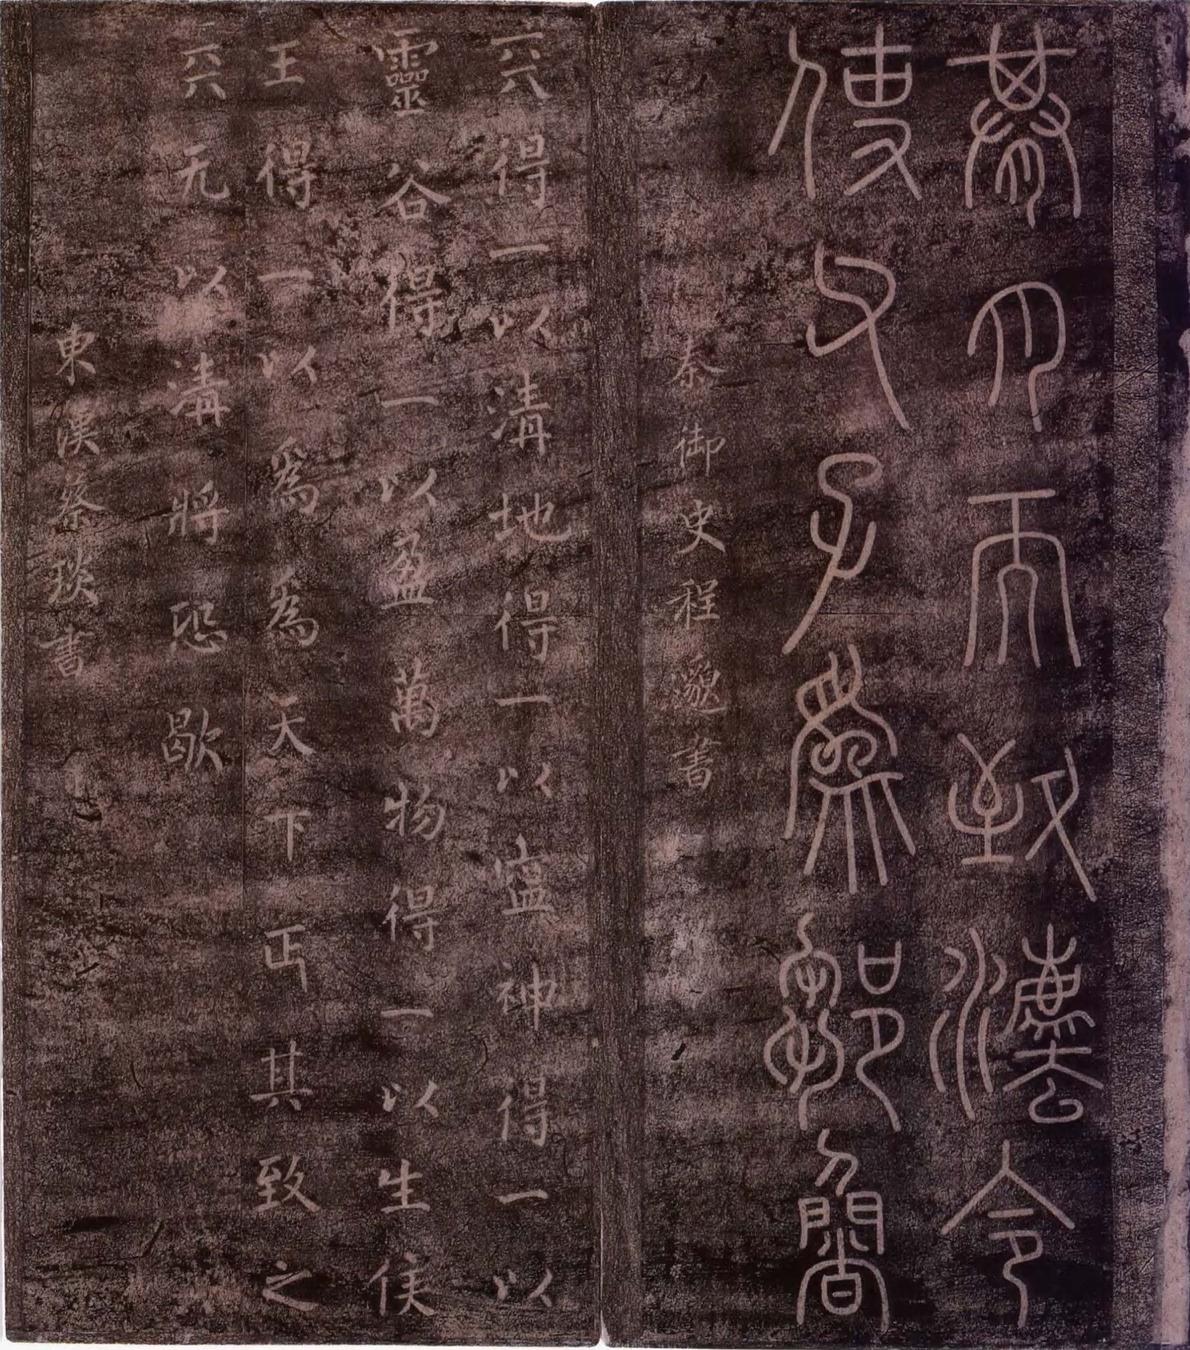 致灋令
使子為
秦御史程邈書
天得一以清地得一以寍神得一以
靈谷得一以盈萬物得一以生侯
王得一以爲爲天下正其致之
天无以清將恐歇
東漢蔡琰書